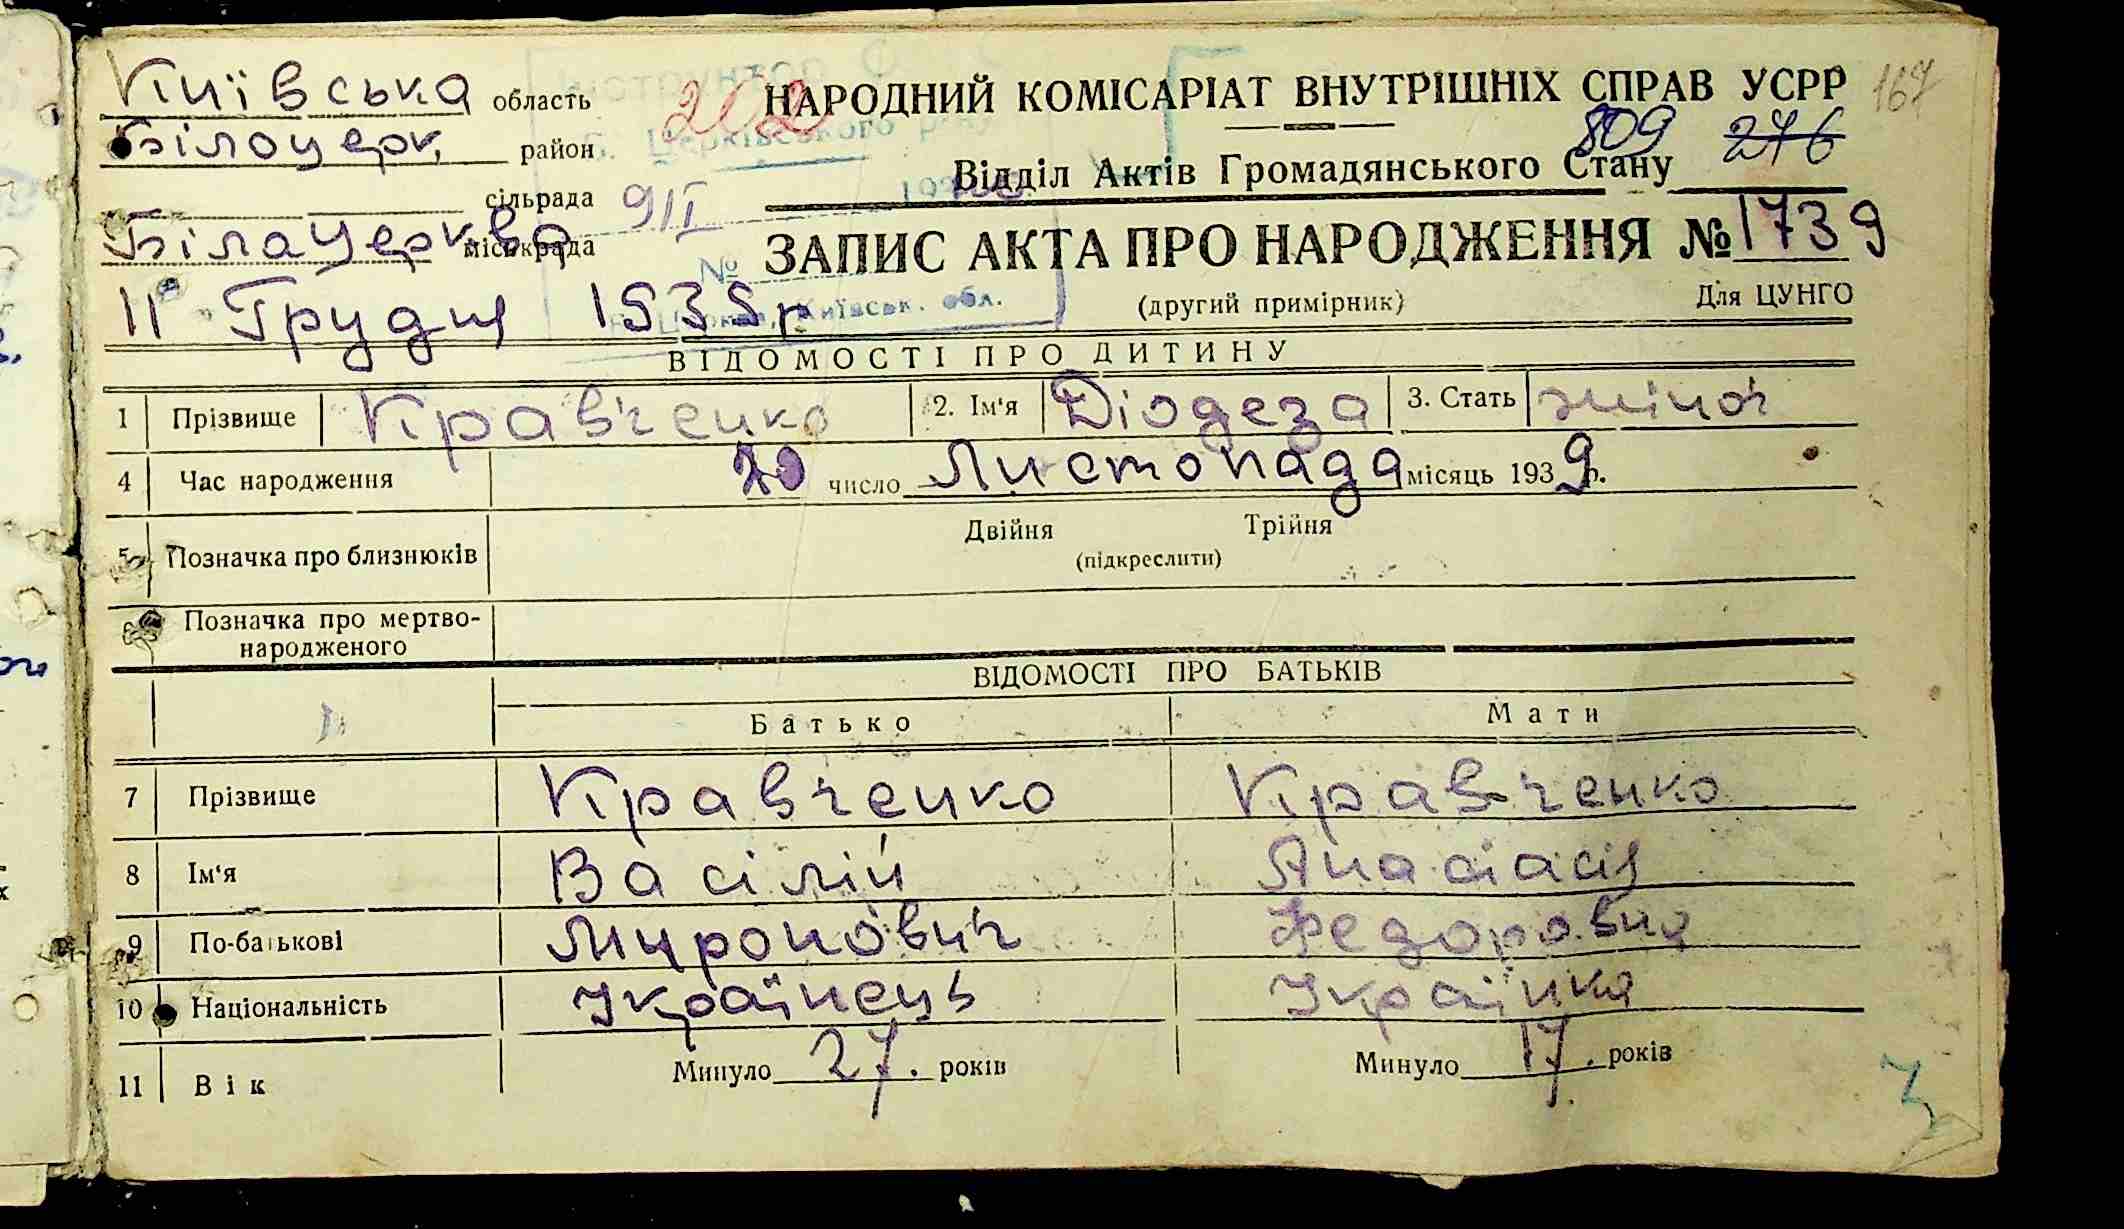 Київська область
Білоцерк. район
сільрада
Біла Церква міськрада
11 Грудня 1939 р
202
9/I
НАРОДНИЙ КОМІСАРІАТ ВНУТРІШНІХ СПРАВ УСРР
167
809 276
Відділ Актів Громадянського Стану
ЗАПИС АКТА ПРО НАРОДЖЕННЯ № 1739
(другий примірник) Для ЦУНГО
№
Київськ. обл.
ВІДОМОСТІ ПРО ДИТИНУ
1 Прізвище Кравченко 2. Ім'я Діодеза 3. Стать жіноч
4 Час народження 20 число Листопада місяць 1939 р.
5 Позначка про близнюків Двійня Трійня
(підкреслити)
6 Позначка про мертво-
народженого
ВІДОМОСТІ ПРО БАТЬКІВ
Батько Мати
7 Прізвище Кравченко Кравченко
8 Ім'я Василій Анастасія
9 По-батькові Миронович Федоровна
10 Національність Українець Українка
11 Вік Минуло 27. років Минуло 17. років